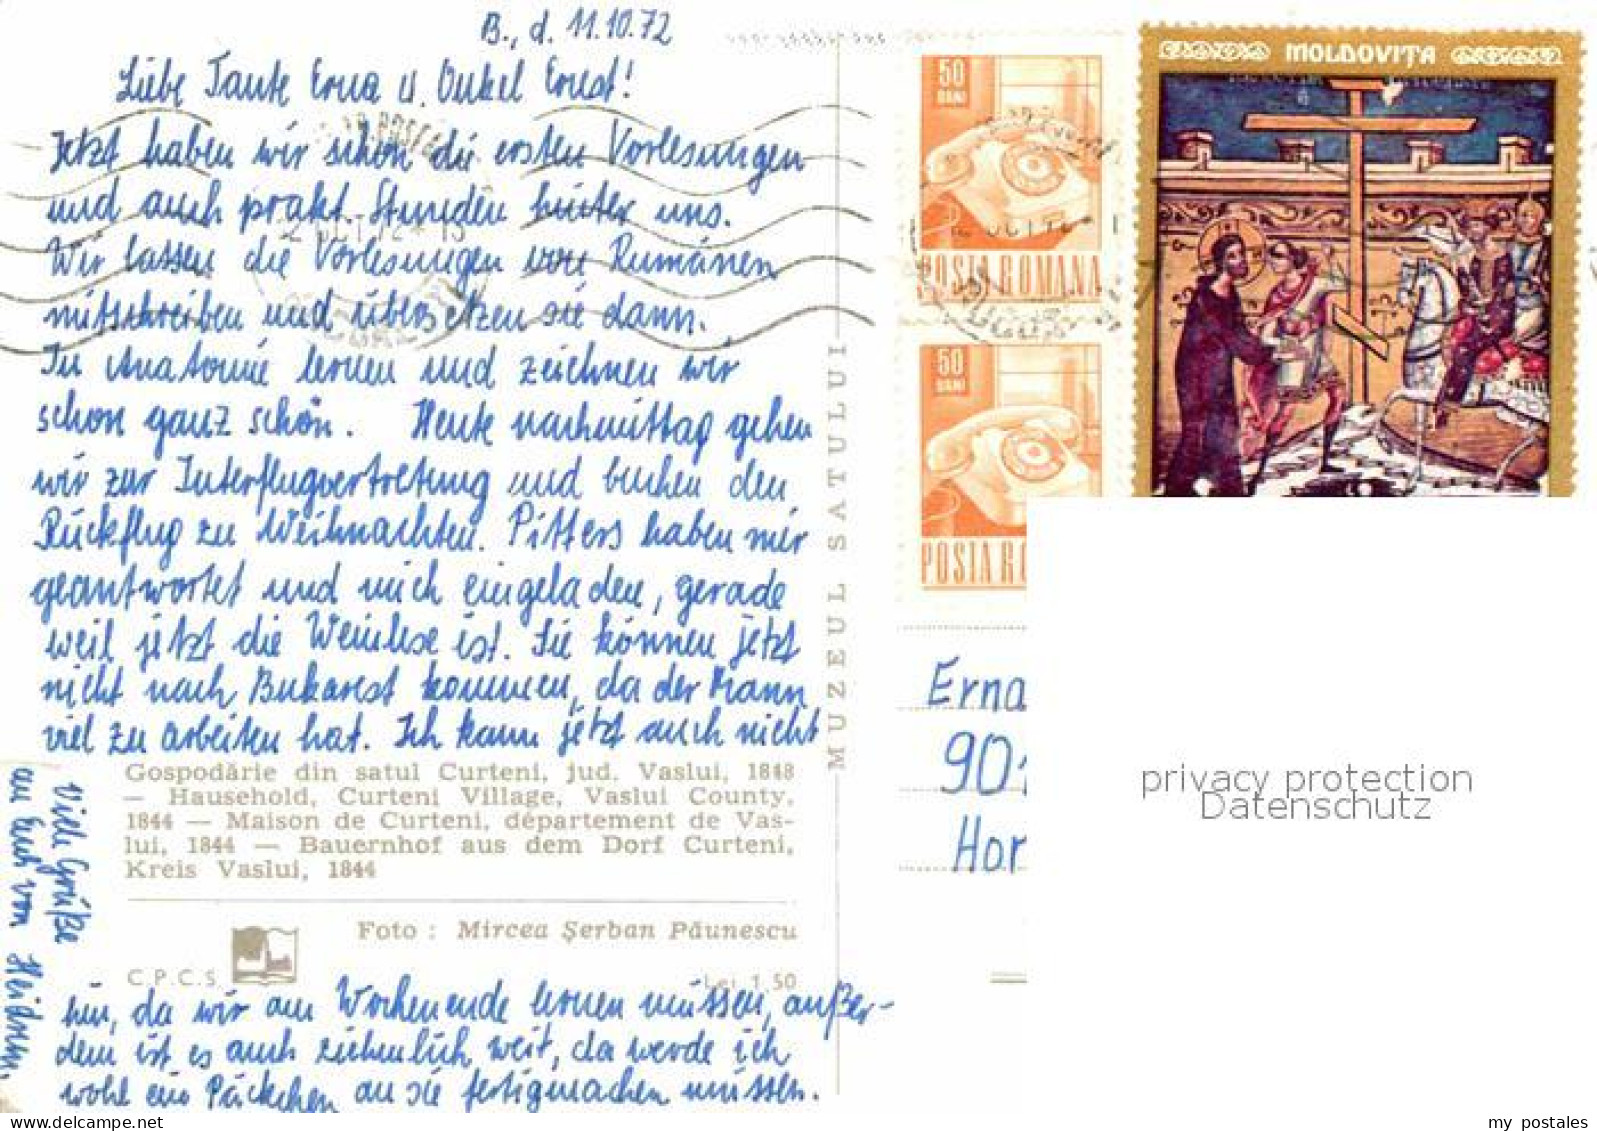 B., d. 11.10.72
Liebe Tante Erna u. Onkel Ernst!
Jetzt haben wir schon die ersten Vorlesungen
und auch prakt. Stunden hinter uns.
Wir lassen die Vorlesungen von Rumänen
mitschreiben und übersetzen sie dann.
In Anatomie lernen und zeichnen wir
schon ganz schön. Heute nachmittag gehen
wir zur Interflugvertretung und buchen den
Rückflug zu Weihnachten. Pitters haben mir
geantwortet und mich eingeladen, gerade
weil jetzt die Weinlese ist. Sie können jetzt
nicht nach Bukarest kommen, da der Mann
viel zu arbeiten hat. Ich kann jetzt auch nicht
Gospodărie din satul Curteni, jud. Vaslui, 1848
— Hausehold, Curteni Village, Vaslui County,
1844 — Maison de Curteni, département de Vas-
lui, 1844 — Bauernhof aus dem Dorf Curteni,
Kreis Vaslui, 1844
Foto : Mircea Șerban Păunescu
C.P.C.S.
Lei 1,50
hin, da wir am Wochenende lernen müssen, außer-
dem ist es auch ziemlich weit, da werde ich
wohl ein Päckchen an sie fertigmachen müssen.
Viele Grüße
an Euch von
MUZEUL SATULUI
50
BANI
POSTA ROMANA
50
BANI
POSTA RO
MOLDOVIȚA
2 OCT 72 - 15
Erna
90
Hor
privacy protection
Datenschutz
my postales